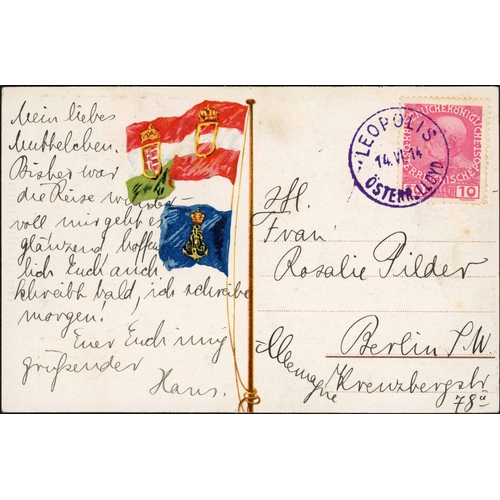 Mein liebes
Muttelchen.
Bisher war
die Reise wunder-
voll mir geht es
glänzend hoffent
lich Euch auch.
schreibt bald, ich schreibe
morgen!
Euer Euch innig
grüßender
Hans.
LEOPOLIS
14.VI.14
ÖSTERR. LLOYD
10
Frau
Rosalie Pilder
Berlin S.W.
Allemagne Kreuzbergstr
78